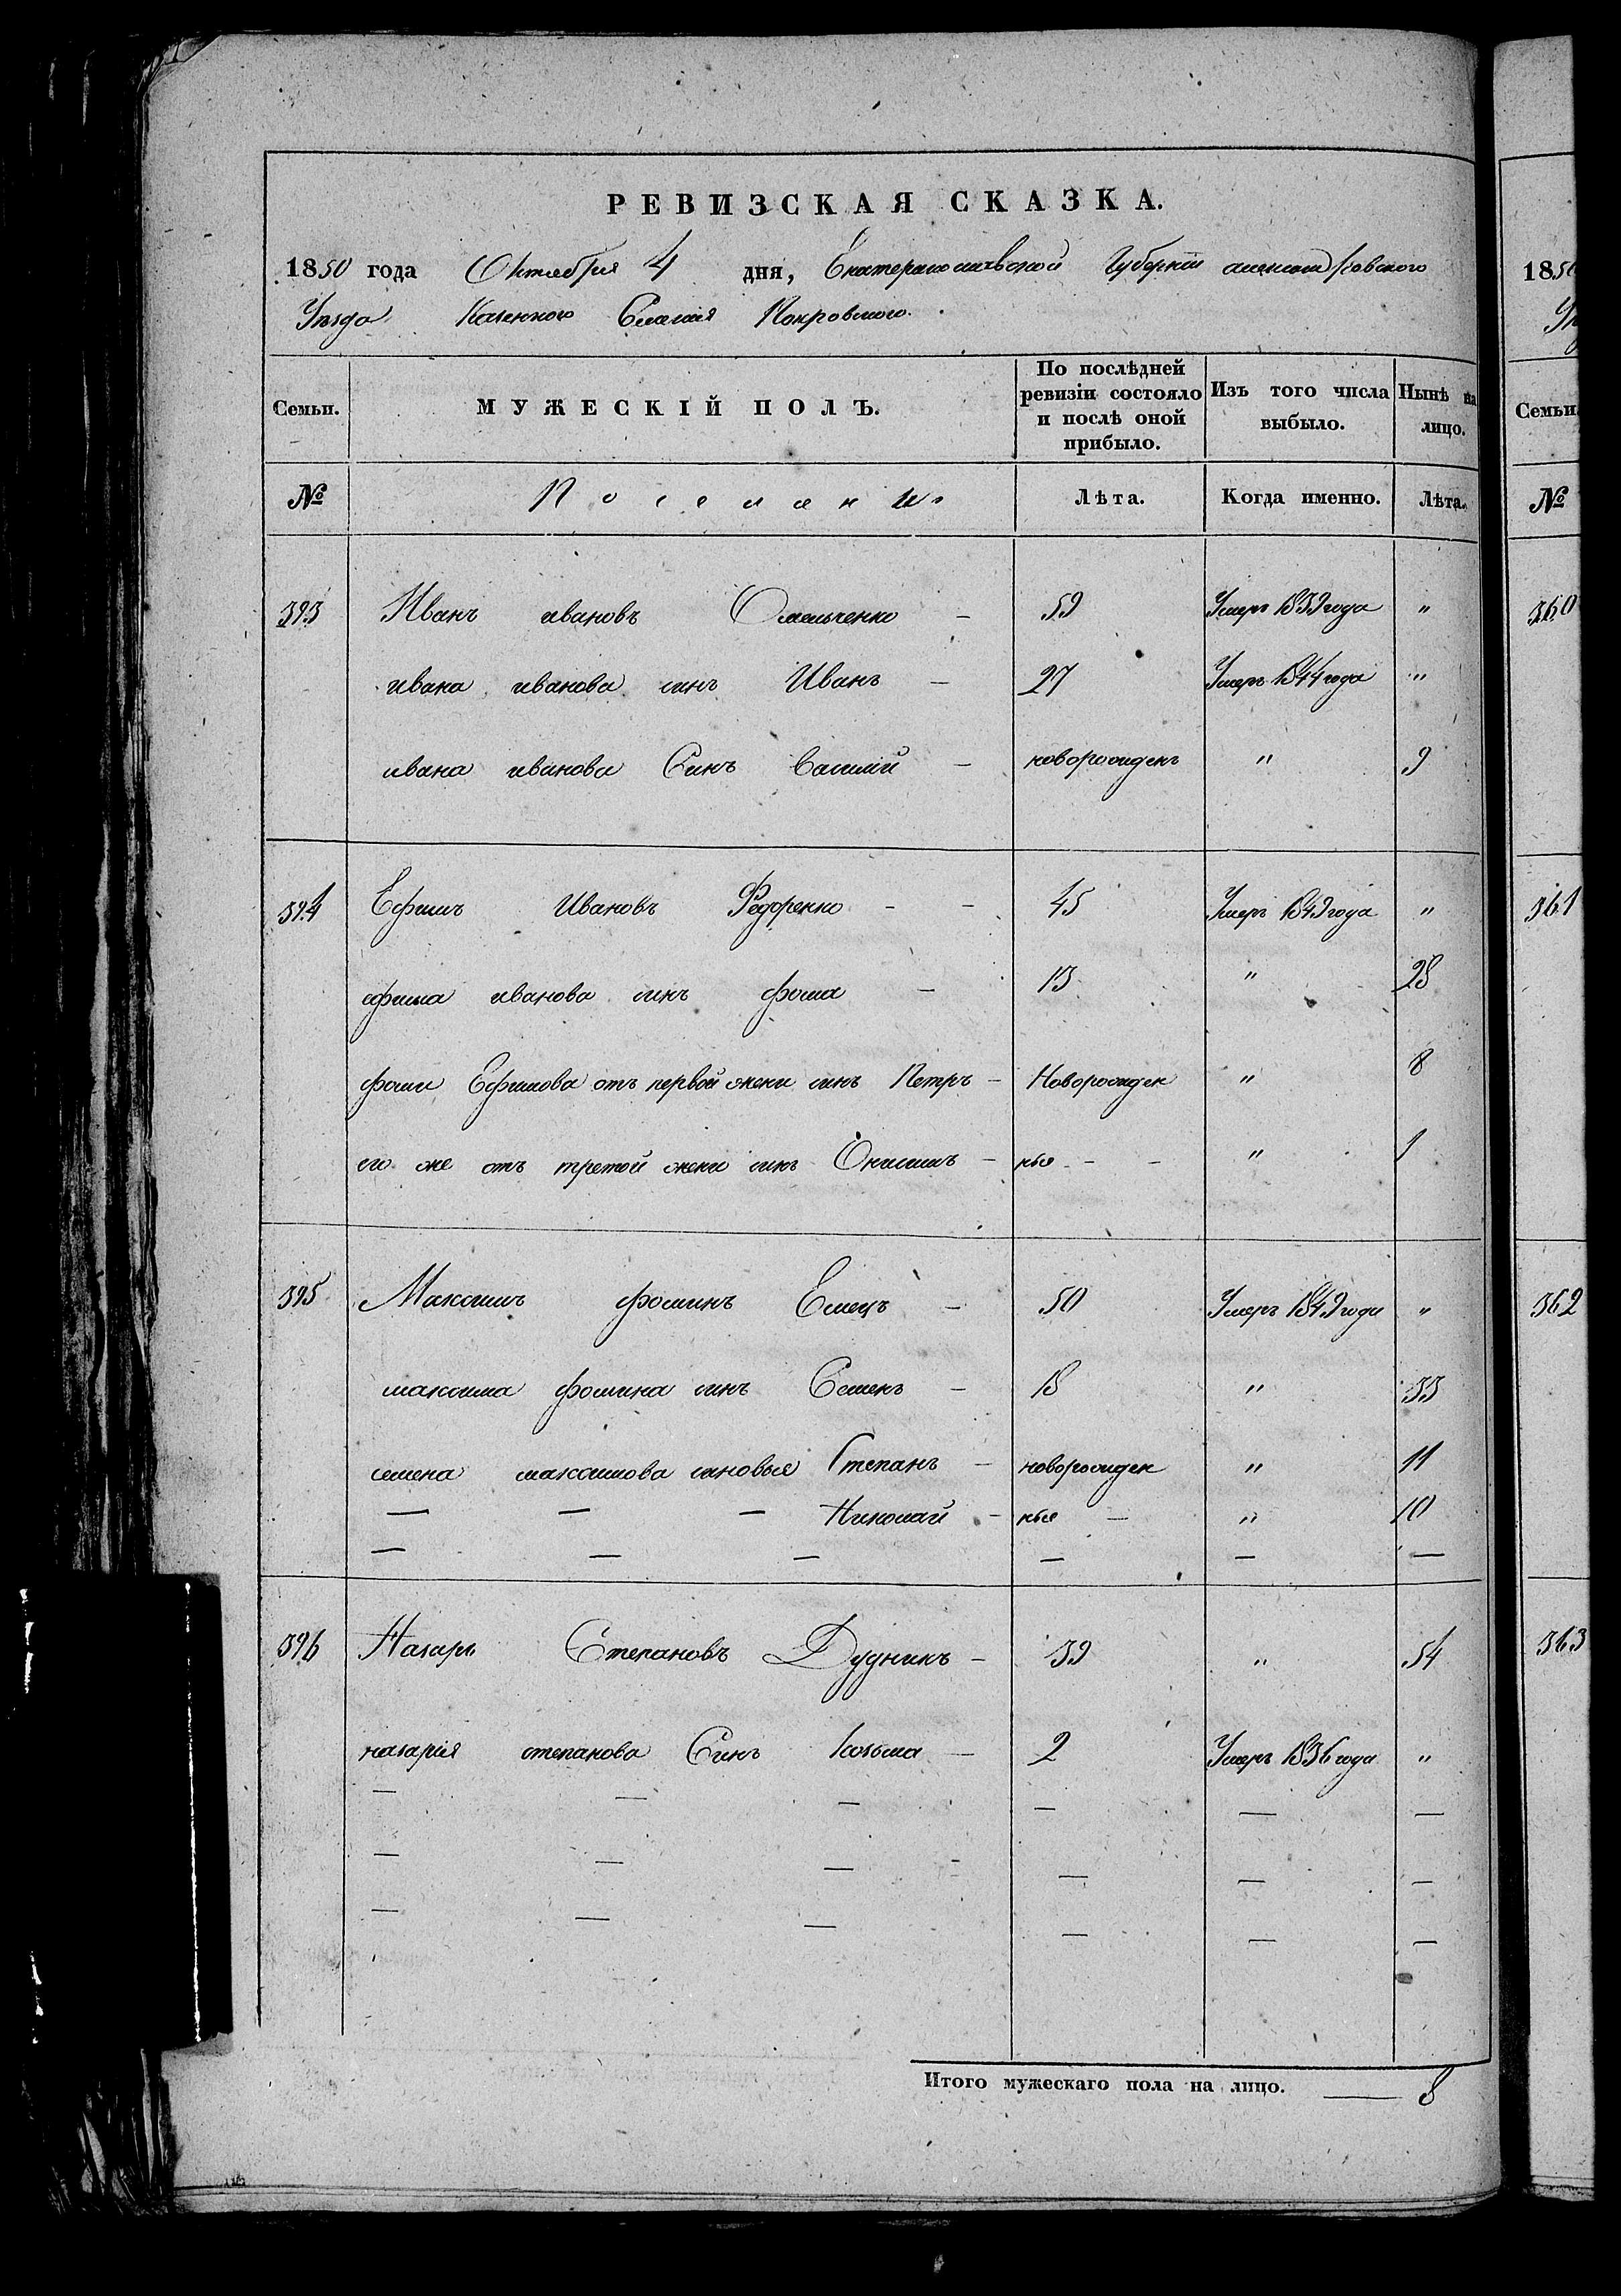 РЕВИЗСКАЯ СКАЗКА.
1850 года Октября 4 дня, Екатеринославской Губерніи александровского
Уѣзда Казенного Селенія Покровского.
Семьи. МУЖЕСКІЙ ПОЛЪ. По послѣдней ревизіи состояло и послѣ оной прибыло. Изъ того числа выбыло. Нынѣ на лицо.
№ Поселяни Лѣта. Когда именно. Лѣта.
393 Иванъ ивановъ Омельченко — 59 Умеръ 1839 года "
ивана иванова синъ Иванъ — 27 Умеръ 1844 года "
ивана иванова Синъ Василій — новорожденъ " 9
394 Ефимъ Ивановъ Федоренко - - 45 Умеръ 1849 года "
ефима иванова синъ фома — 13 " 28
фоми Ефимова отъ первой жени синъ Петръ - Новорожден " 8
его же отъ третой жени синъ Онисимъ - ные - - " 1
395 Максимъ фоминъ Емецъ - 50 Умеръ 1849 года "
максима фомина синъ Семенъ - 18 " 33
семена максимова синовье Степанъ - новорожден " 11
— — — Николай - ные — " 10
— — — — — —
396 Назаръ Степановъ Дудникъ - 39 " 54
назария степанова Синъ Козьма — 2 Умеръ 1836 года "
— — — — — —
— — — - — — —
— — — — — —
Итого мужескаго пола на лицо. — 8
1850
Семьи.
№
360
361
362
363